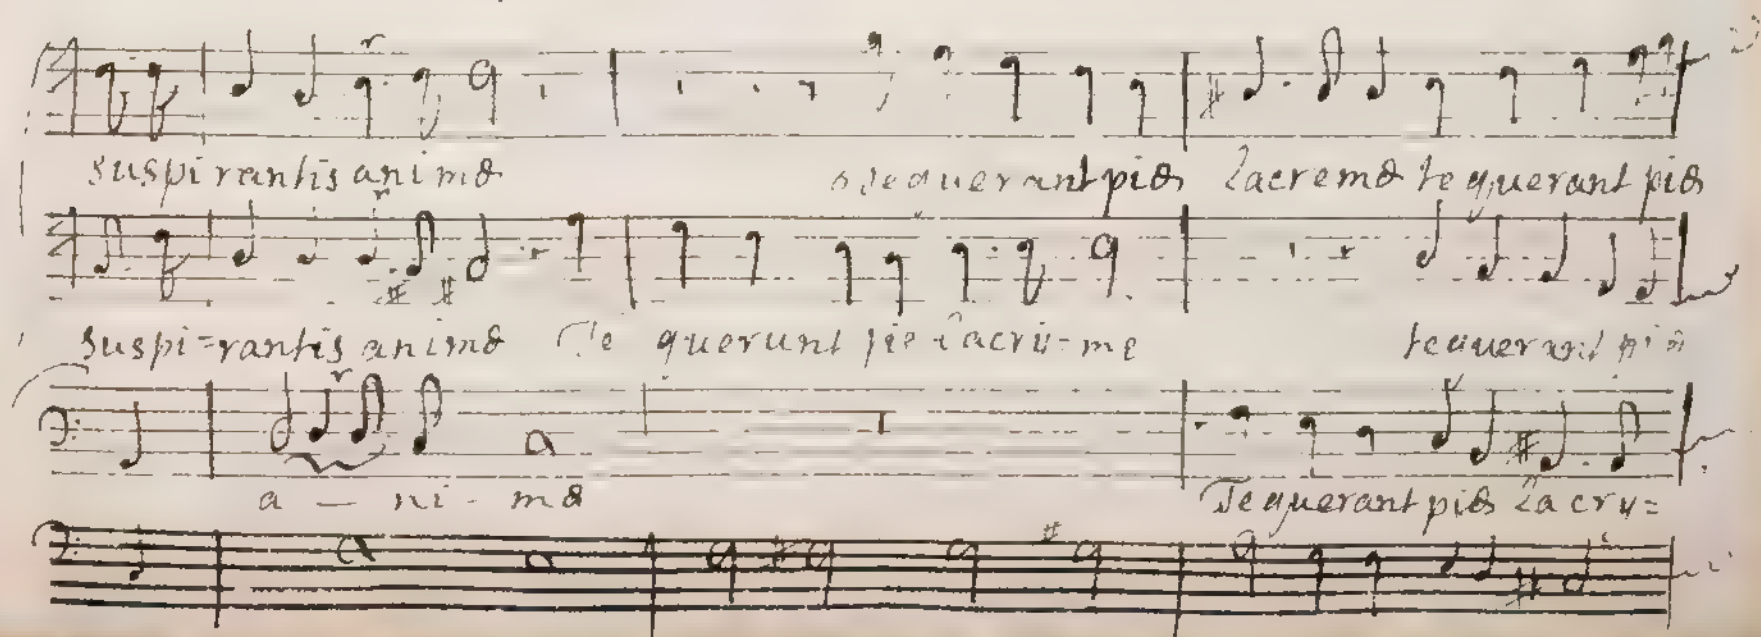 suspirantis animæ te querant piæ Lacremæ te querant piæ
suspi=rantis animæ Te querunt pie Lacru-me te querant piæ
a - ni - mæ Te querant piæ Lacry=